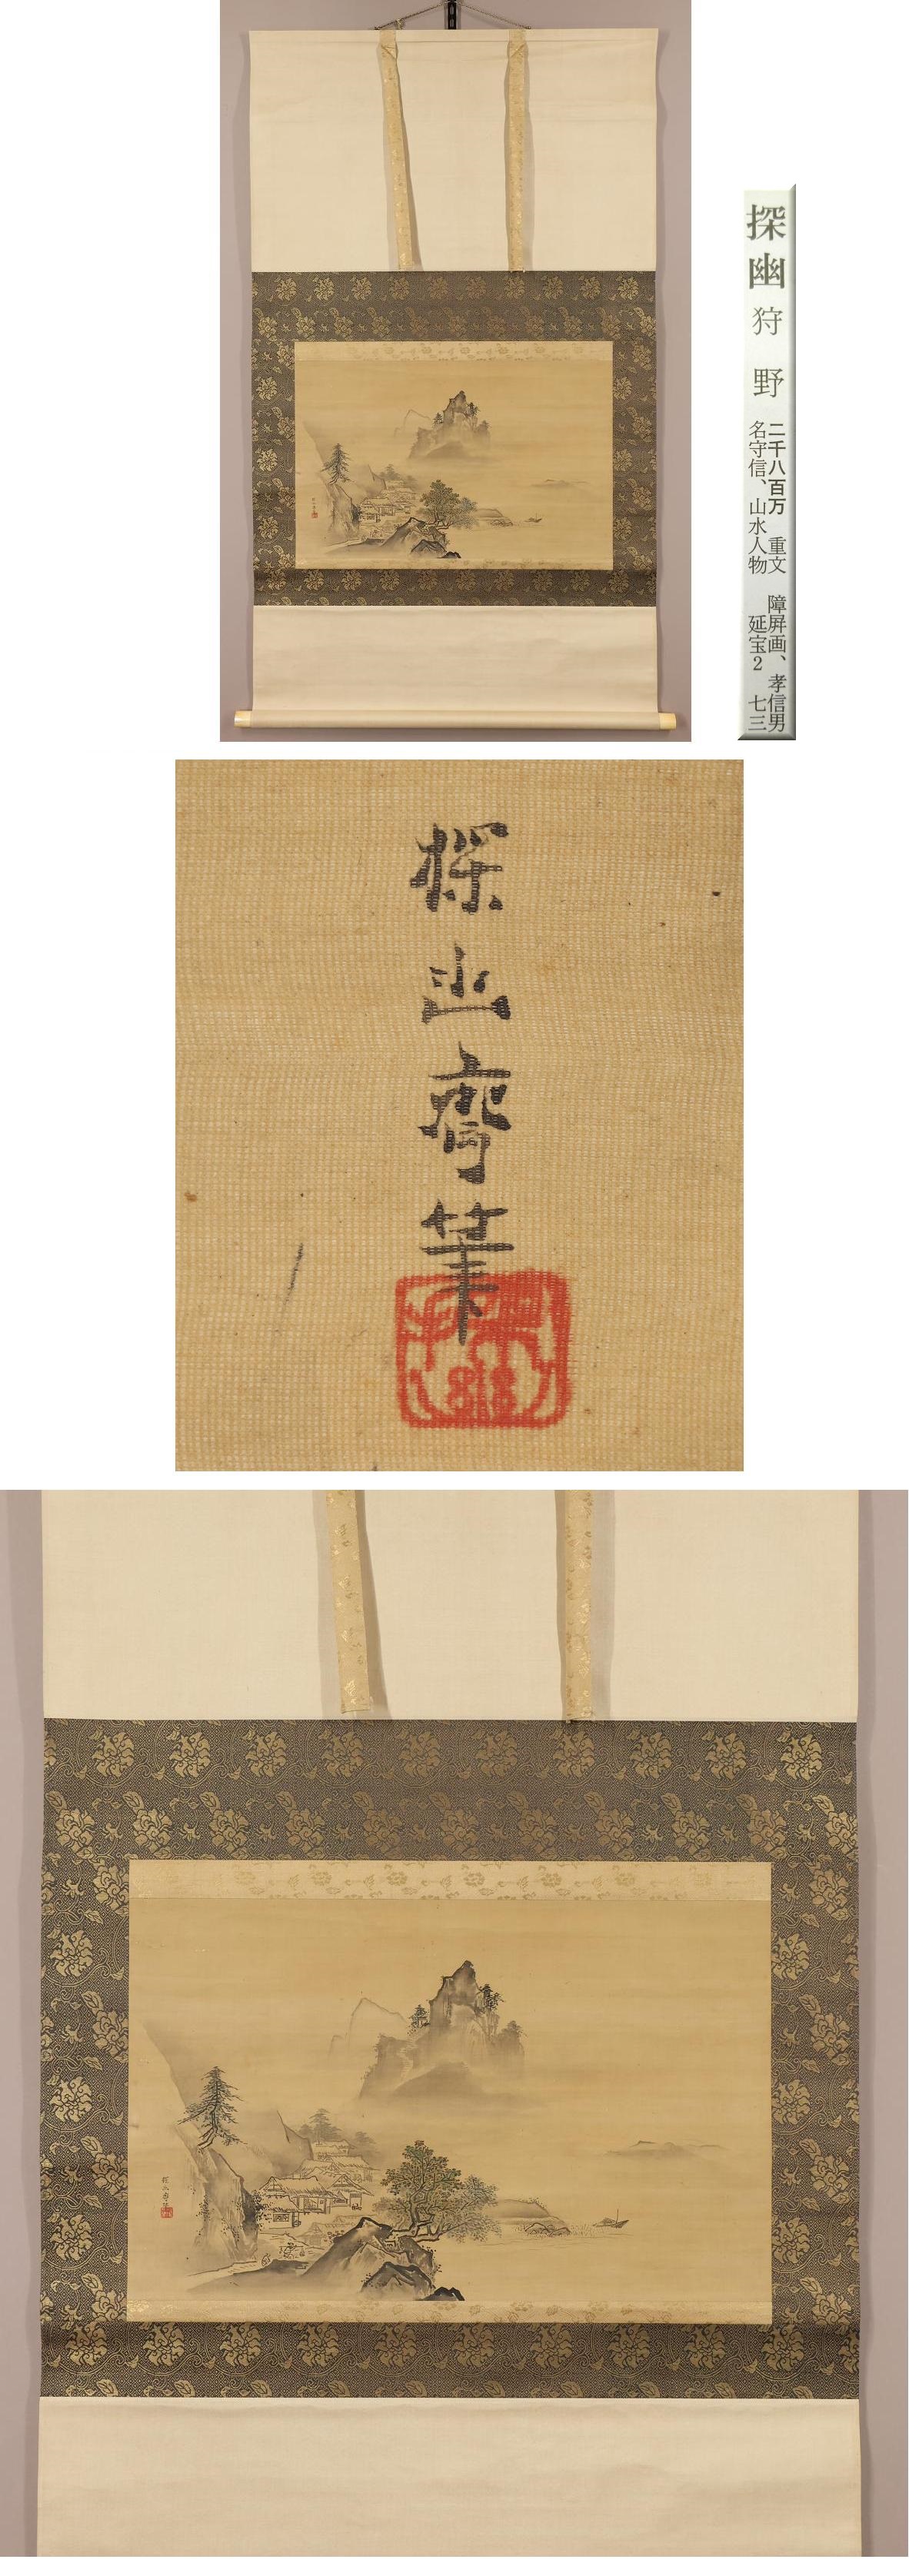 探幽 狩野
二千八百万 重文 障屏画、孝信男
名守信、山水人物 延宝2 七三
探幽斎筆